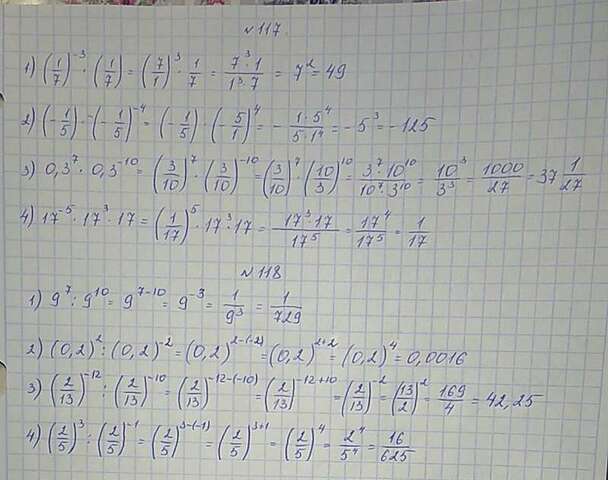 №117.
1) (1/7)^-3 · (1/7) = (7/1)^3 · 1/7 = 7^3·1/1^3·7 = 7^2 = 49
2) (-1/5) · (-1/5)^-4 = (-1/5) · (-5/1)^4 = - 1·5^4/5·1^4 = -5^3 = -125
3) 0,3^7 · 0,3^-10 = (3/10)^7 · (3/10)^-10 = (3/10)^7 · (10/3)^10 = 3^7·10^10/10^7·3^10 = 10^3/3^3 = 1000/27 = 37 1/27
4) 17^-5 · 17^3 · 17 = (1/17)^5 · 17^3 · 17 = 17^3·17/17^5 = 17^4/17^5 = 1/17
№118
1) 9^7 : 9^10 = 9^7-10 = 9^-3 = 1/9^3 = 1/729
2) (0,2)^2 : (0,2)^-2 = (0,2)^2-(-2) = (0,2)^2+2 = (0,2)^4 = 0,0016
3) (2/13)^-12 : (2/13)^-10 = (2/13)^-12-(-10) = (2/13)^-12+10 = (2/13)^-2 = (13/2)^2 = 169/4 = 42,25
4) (2/5)^3 : (2/5)^-1 = (2/5)^3-(-1) = (2/5)^3+1 = (2/5)^4 = 2^4/5^4 = 16/625